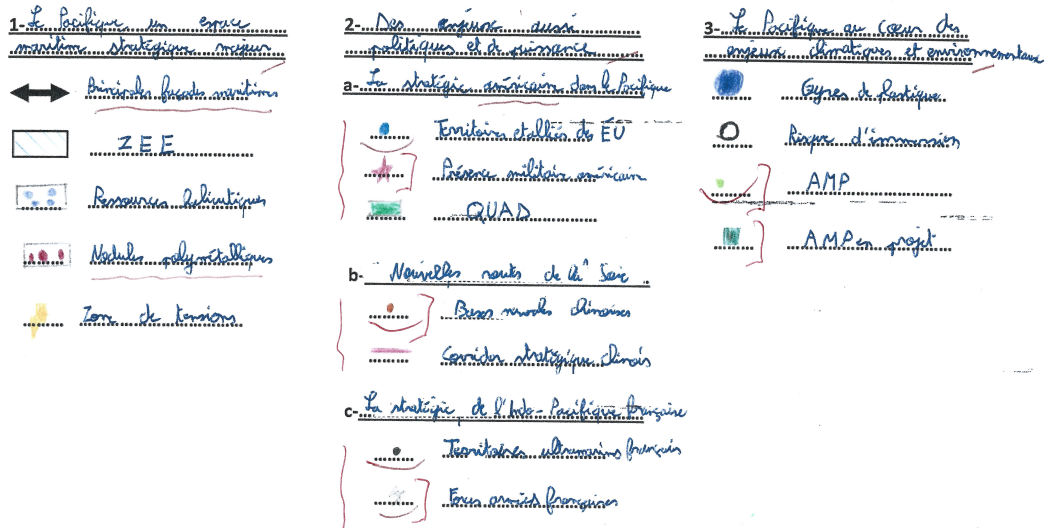 1- Le Pacifique un espace
maritime stratégique majeur
Principales façades maritimes
ZEE
Ressources halieutiques
Nodules polymétalliques
Zone de tensions
2- Des enjeux aussi
politiques et de puissance
a- La stratégie américaine dans le Pacifique
Territoires et alliés des ÉU
Présence militaire américaine
QUAD
b- Nouvelles routes de la Soie
Bases navales chinoises
Corridor stratégique chinois
c- La stratégie de l'Indo-Pacifique française
Territoires ultramarins français
Forces armées françaises
3- Le Pacifique au cœur des
enjeux climatiques et environnementaux
Gyres de plastique
Risque d'immersion
AMP
AMP en projet